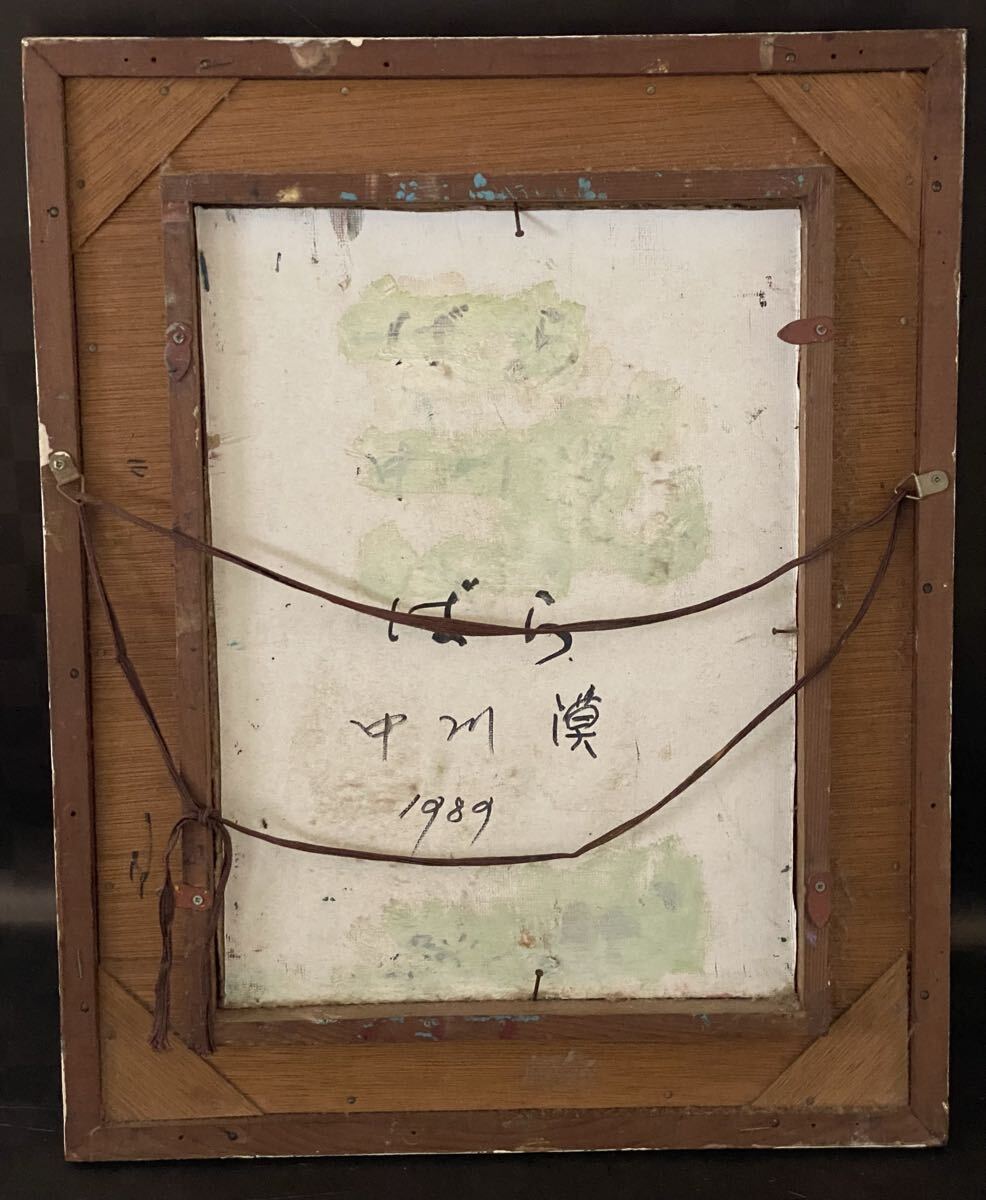 ばら
中川 漠
1989